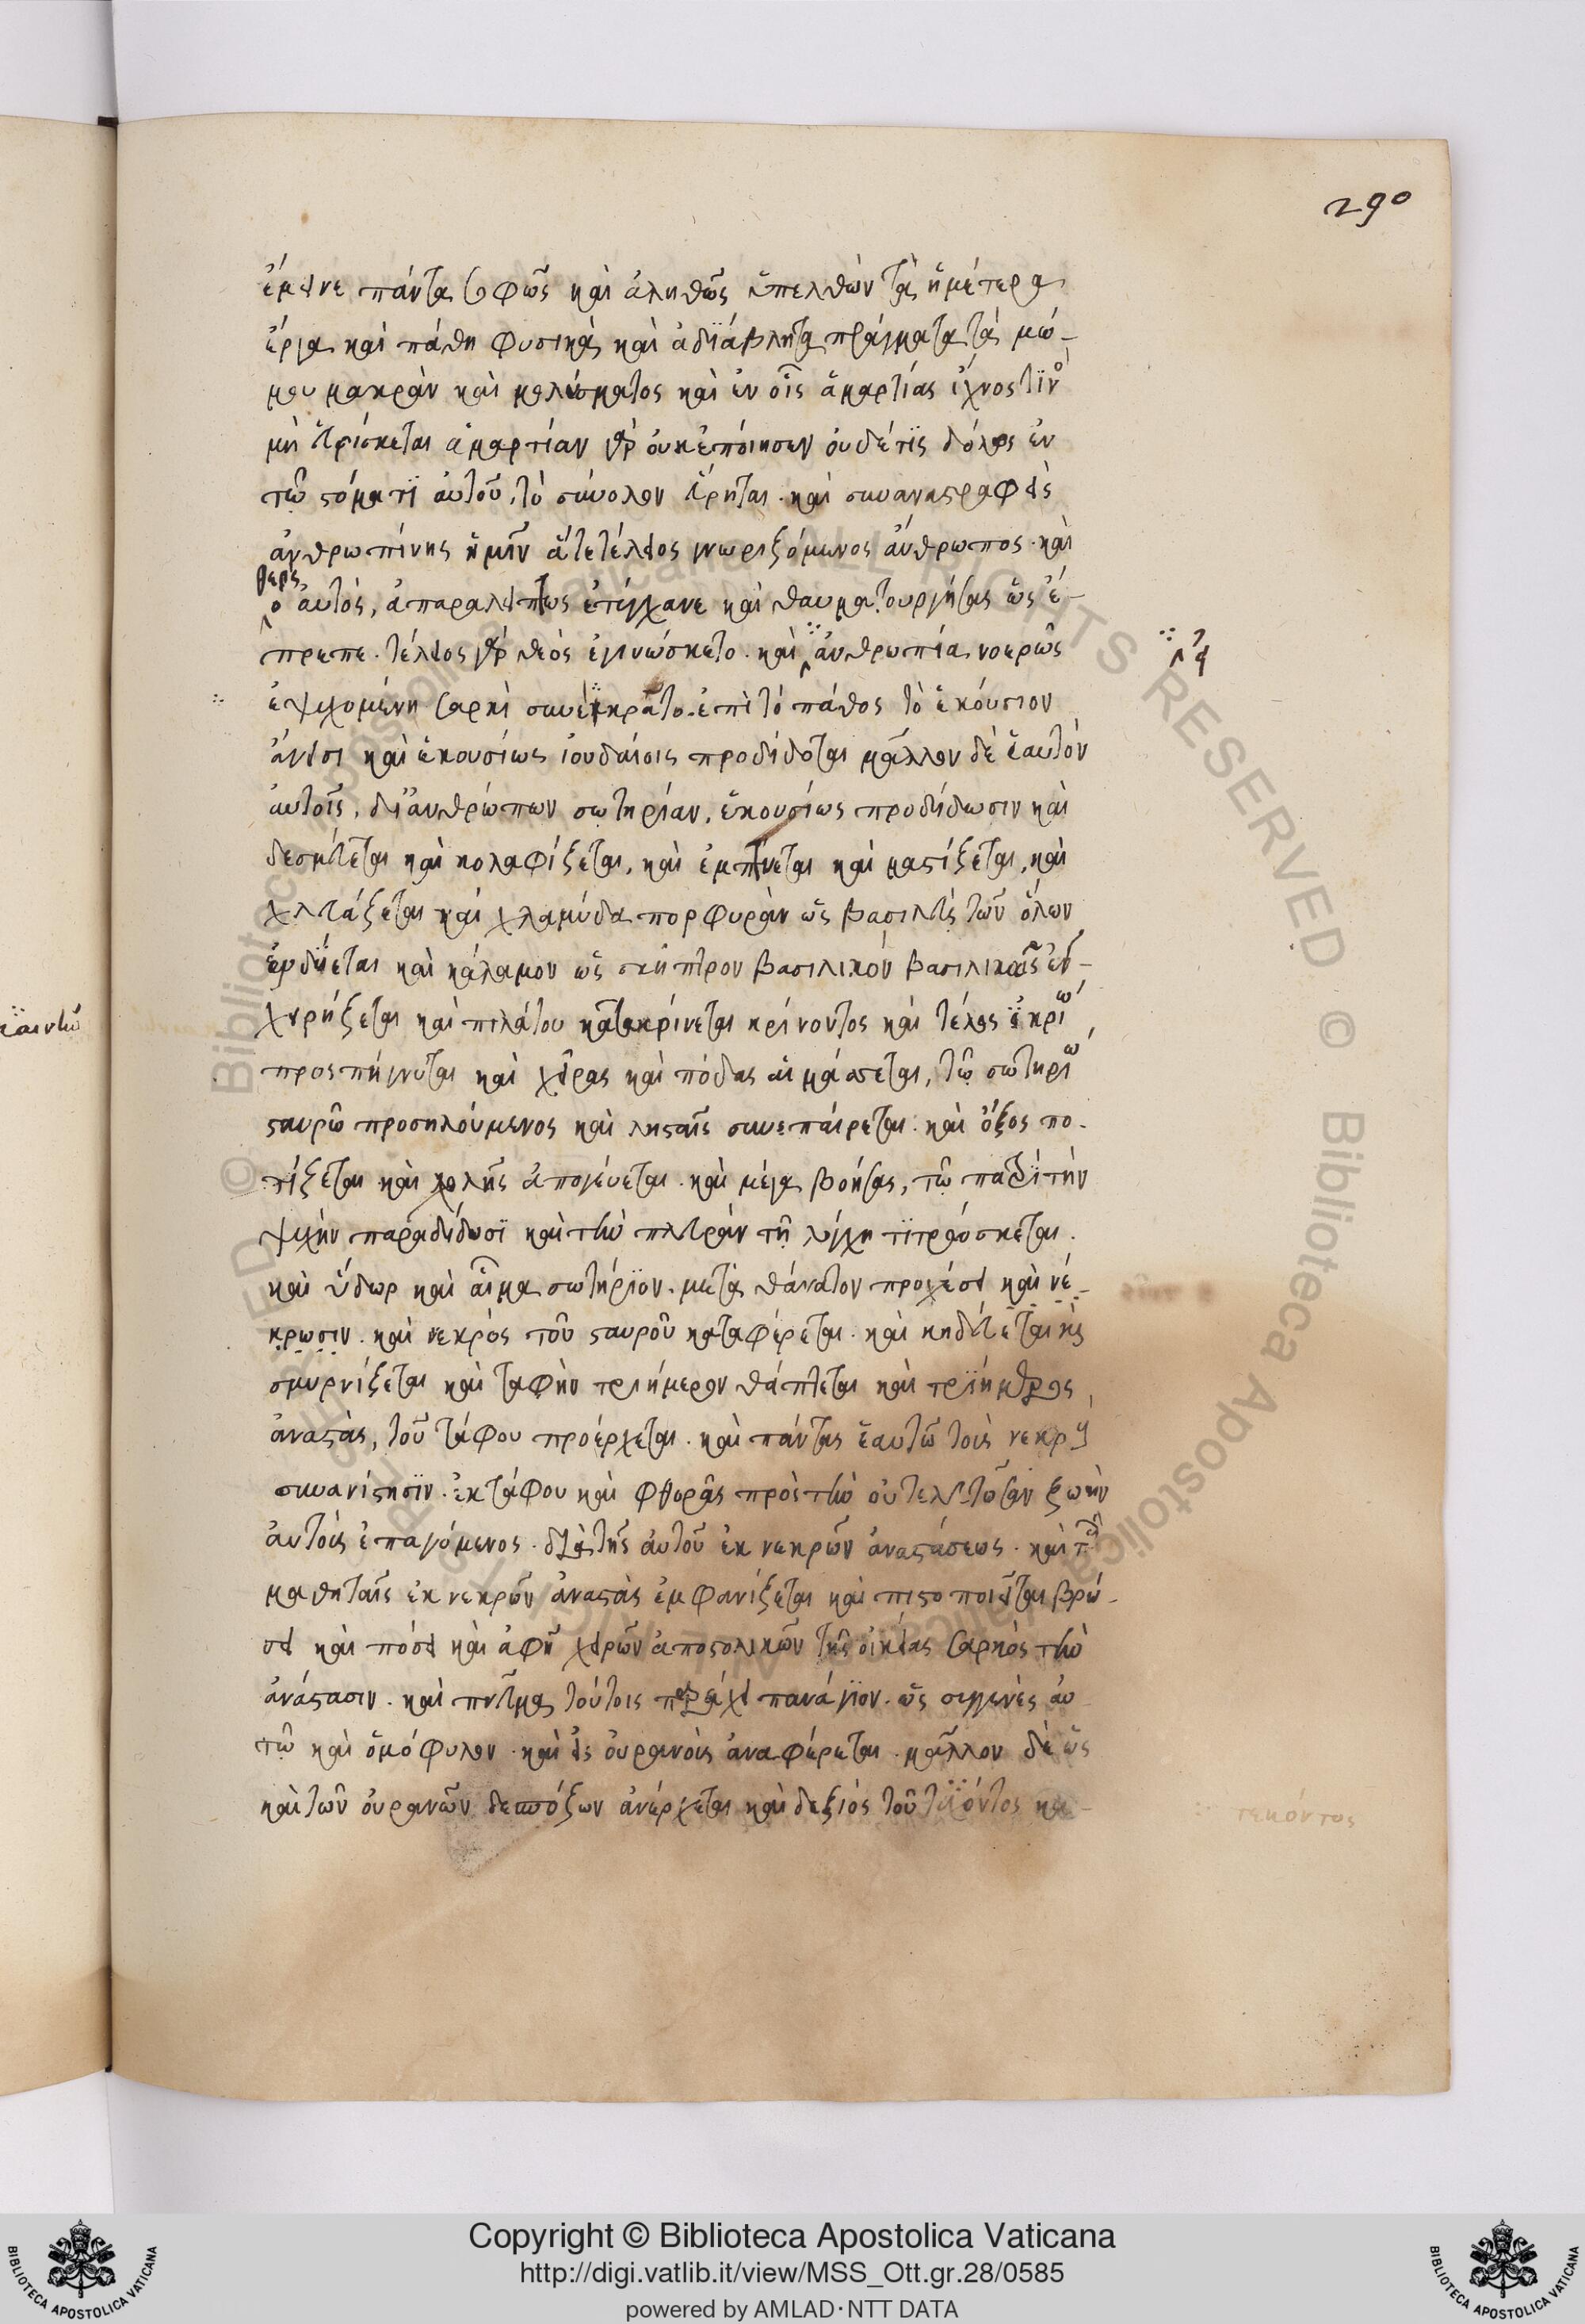 290
ἔμεινε πάντα σοφῶς καὶ ἀληθῶς ὑπελθὼν τὰ ἡμέτερα
ἔργα καὶ πάθη φυσικὰ καὶ ἀδϊάβλητα πράγματα τὰ μώ-
μου μακρὰν καὶ μολύσματος καὶ ἐν οἷς ἁμαρτίας ἴχνος
μὴ εὑρίσκεται ἁμαρτίαν γὰρ οὐκ ἐποίησεν οὐδέ τϊς δόλος ἐν
τῶ στόματϊ αὐτοῦ, τὸ σύνολον εὕρηται. καὶ συναναστραφεὶς
ἀνθρωπίνης ἡμῖν ἅτε τέλειος γνωριζόμενος ἄνθρωπος. καὶ
ὁ αὐτὸς, ἀπαραλείπτως ἐτύγχανε καὶ θαυματουργήσας ὡς ἔ-
πρεπε. τέλειος γὰρ θεὸς ἐγινώσκετο. καὶ ἀνθρωπεία νοερῶς
ἐψυχομένη σαρκὶ συνεκέκρατο. ἐπὶ τὸ πάθος τὸ ἑκούσιον
ἄνεισι καὶ ἑκουσίως ἰουδαίοις προδίδοται μᾶλλον δὲ ἑαυτὸν
αὐτοῖς, δι' ἀνθρώπων σωτηρίαν, ἑκουσίως προδίδωσιν καὶ
δεσμεύεται καὶ κολαφίζεται, καὶ ἐμπτύεται καὶ μαστίζεται, καὶ
χλευάζεται καὶ χλαμύδα πορφυρὰν ὡς βασιλεὺς τῶν ὅλων
ἐνδύεται καὶ κάλαμον ὡς σκῆπτρον βασιλικὸν βασιλικῶς ἐν-
χειρίζεται καὶ πιλάτου κατακρίνεται κρίνοντος καὶ τέλος ἰκρίω
προσπήγνυται καὶ χεῖρας καὶ πόδας αἱμάσσεται, τῶ σωτηρίω
σταυρῶ προσηλούμενος καὶ λησταῖς συνεπαίρεται. καὶ ὄξος πο-
τίζεται καὶ χολῆς ἀπογεύεται. καὶ μέγα βοήσας, τῶ πατρὶ τὴν
ψυχὴν παραδίδωσϊ καὶ τὴν πλευρὰν τῇ λόγχη τϊτρώσκεται.
καὶ ὕδωρ καὶ αἷμα σωτήρϊον. μετὰ θάνατον προχέει καὶ νέ-
κρωσιν. καὶ νεκρὸς τοῦ σταυροῦ καταφέρεται. καὶ κηδεύεται καὶ
σμυρνίζεται καὶ ταφὴν τριήμερον θάπτεται καὶ τρϊήμερος
ἀναστὰς, τοῦ τάφου προέρχεται. καὶ πάντας ἑαυτῶ τοὺς νεκροὺς
συνανίστησϊν. ἐκ τάφου καὶ φθορᾶς πρὸς τὴν οὐ τελευτῶσαν ζωὴν
αὐτοὺς ἐπαγόμενος. διὰ τῆς αὐτοῦ ἐκ νεκρῶν ἀναστάσεως. καὶ
μαθηταῖς ἐκ νεκρῶν ἀναστὰς ἐμφανίζεται καὶ πιστοποιεῖται βρώ-
σει καὶ πόσει καὶ ἀφῇ χειρῶν ἀποστολικῶν τῆς οἰκείας σαρκὸς τὴν
ἀνάστασιν. καὶ πνεῦμα τούτοις παρέχει πανάγϊον. ὡς συγγενὲς αὐ
τῶ καὶ ὁμόφυλον. καὶ εἰς οὐρανοὺς ἀναφέρεται. μᾶλλον δὲ ὡς
καὶ τῶν οὐρανῶν δεσπόζων ἀνέρχεται καὶ δεξιὸς τοῦ τεκόντος κα-
τεκόντος
Copyright © Biblioteca Apostolica Vaticana
http://digi.vatlib.it/view/MSS_Ott.gr.28/0585
powered by AMLAD·NTT DATA
BIBLIOTECA APOSTOLICA VATICANA
BIBLIOTECA APOSTOLICA VATICANA